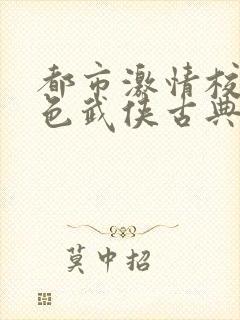 都市激情校
色武侠古典
莫中招